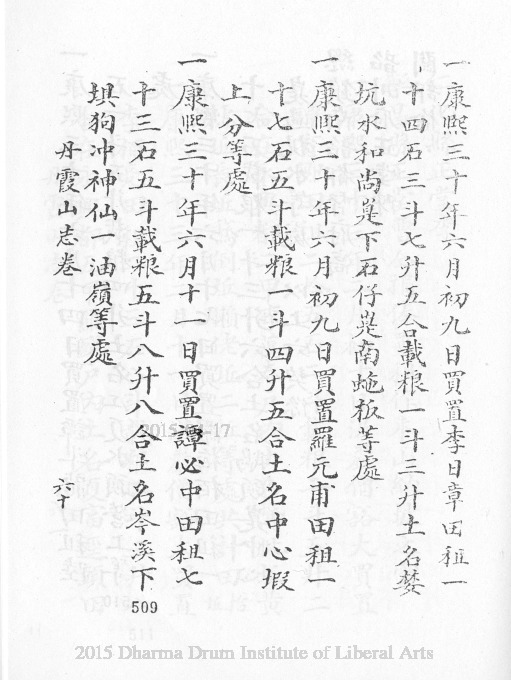 一康熙三十年六月初九日買置李日章田租一
十四石三斗七升五合載粮一斗三升土名婪
坑水和尚㟁下石仔㟁南虵板等處
一康熙三十年六月初九日買置羅元甫田租一
十七石五斗載粮一斗四升五合土名中心塅
上分等處
一康熙三十年六月十一日買置譚必中田租七
十三石五斗載粮五斗八升八合土名岑溪下
垻狗冲神仙 油嶺等處
丹霞山志卷 六十
509
2015 Dharma Drum Institute of Liberal Arts